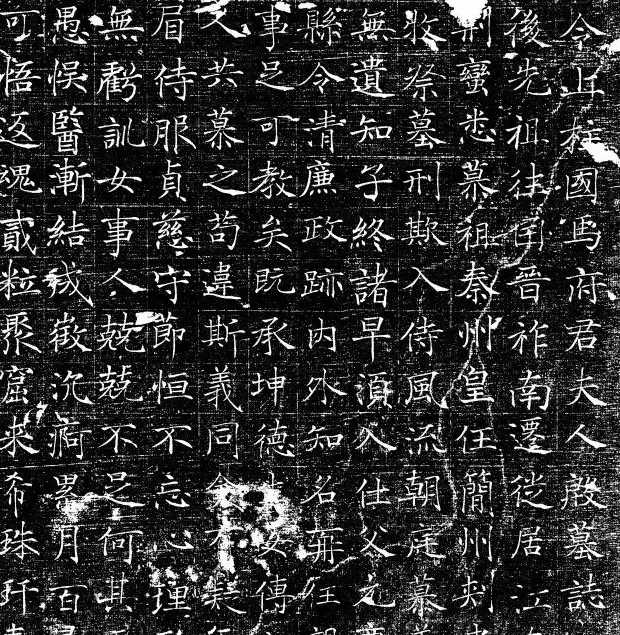 今上柱國馬府君夫人殷墓誌
後先祖往因晉祚南遷從居江
荆蠻悉慕祖秦州皇任簡州刺
牧祭墓刑欺入侍風流朝庭慕
無遺知子終諸早湏入仕父元
縣令清廉政跡内外知名弃任
事足可教矣既承坤德 女傳
人共慕之苟違斯義同 不
眉侍服貞慈守節恒不忘心理
無虧訓女事人兢兢不足何其
愚悮醫漸結成徵沉痾累月百
可悟返魂貳粒聚窟求希珠玕